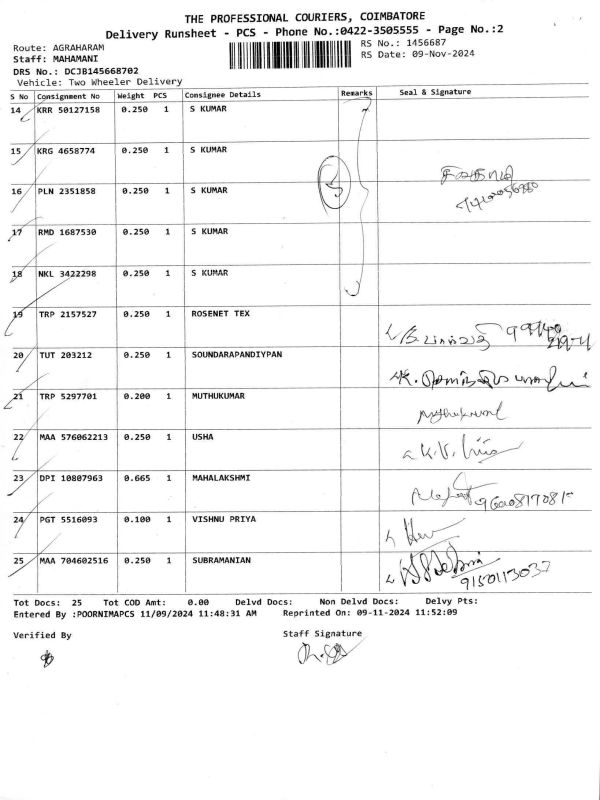 THE PROFESSIONAL COURIERS, COIMBATORE
Delivery Runsheet - PCS - Phone No.:0422-3505555 - Page No.:2
Route: AGRAHARAM
RS No.: 1456687
Staff: MAHAMANI
RS Date: 09-Nov-2024
DRS No.: DCJB145668702
Vehicle: Two Wheeler Delivery
S No Consignment No Weight PCS Consignee Details Remarks Seal & Signature
14 KRR 50127158 0.250 1 S KUMAR
15 KRG 4658774 0.250 1 S KUMAR
16 PLN 2351858 0.250 1 S KUMAR
17 RMD 1687530 0.250 1 S KUMAR
18 NKL 3422298 0.250 1 S KUMAR
19 TRP 2157527 0.250 1 ROSENET TEX
20 TUT 203212 0.250 1 SOUNDARAPANDIYPAN
21 TRP 5297701 0.200 1 MUTHUKUMAR
22 MAA 576062213 0.250 1 USHA
23 DPI 10807963 0.665 1 MAHALAKSHMI
24 PGT 5516093 0.100 1 VISHNU PRIYA
25 MAA 704602516 0.250 1 SUBRAMANIAN
9150113037
Tot Docs: 25 Tot COD Amt: 0.00 Delvd Docs: Non Delvd Docs: Delvy Pts:
Entered By :POORNIMAPCS 11/09/2024 11:48:31 AM Reprinted On: 09-11-2024 11:52:09
Verified By Staff Signature